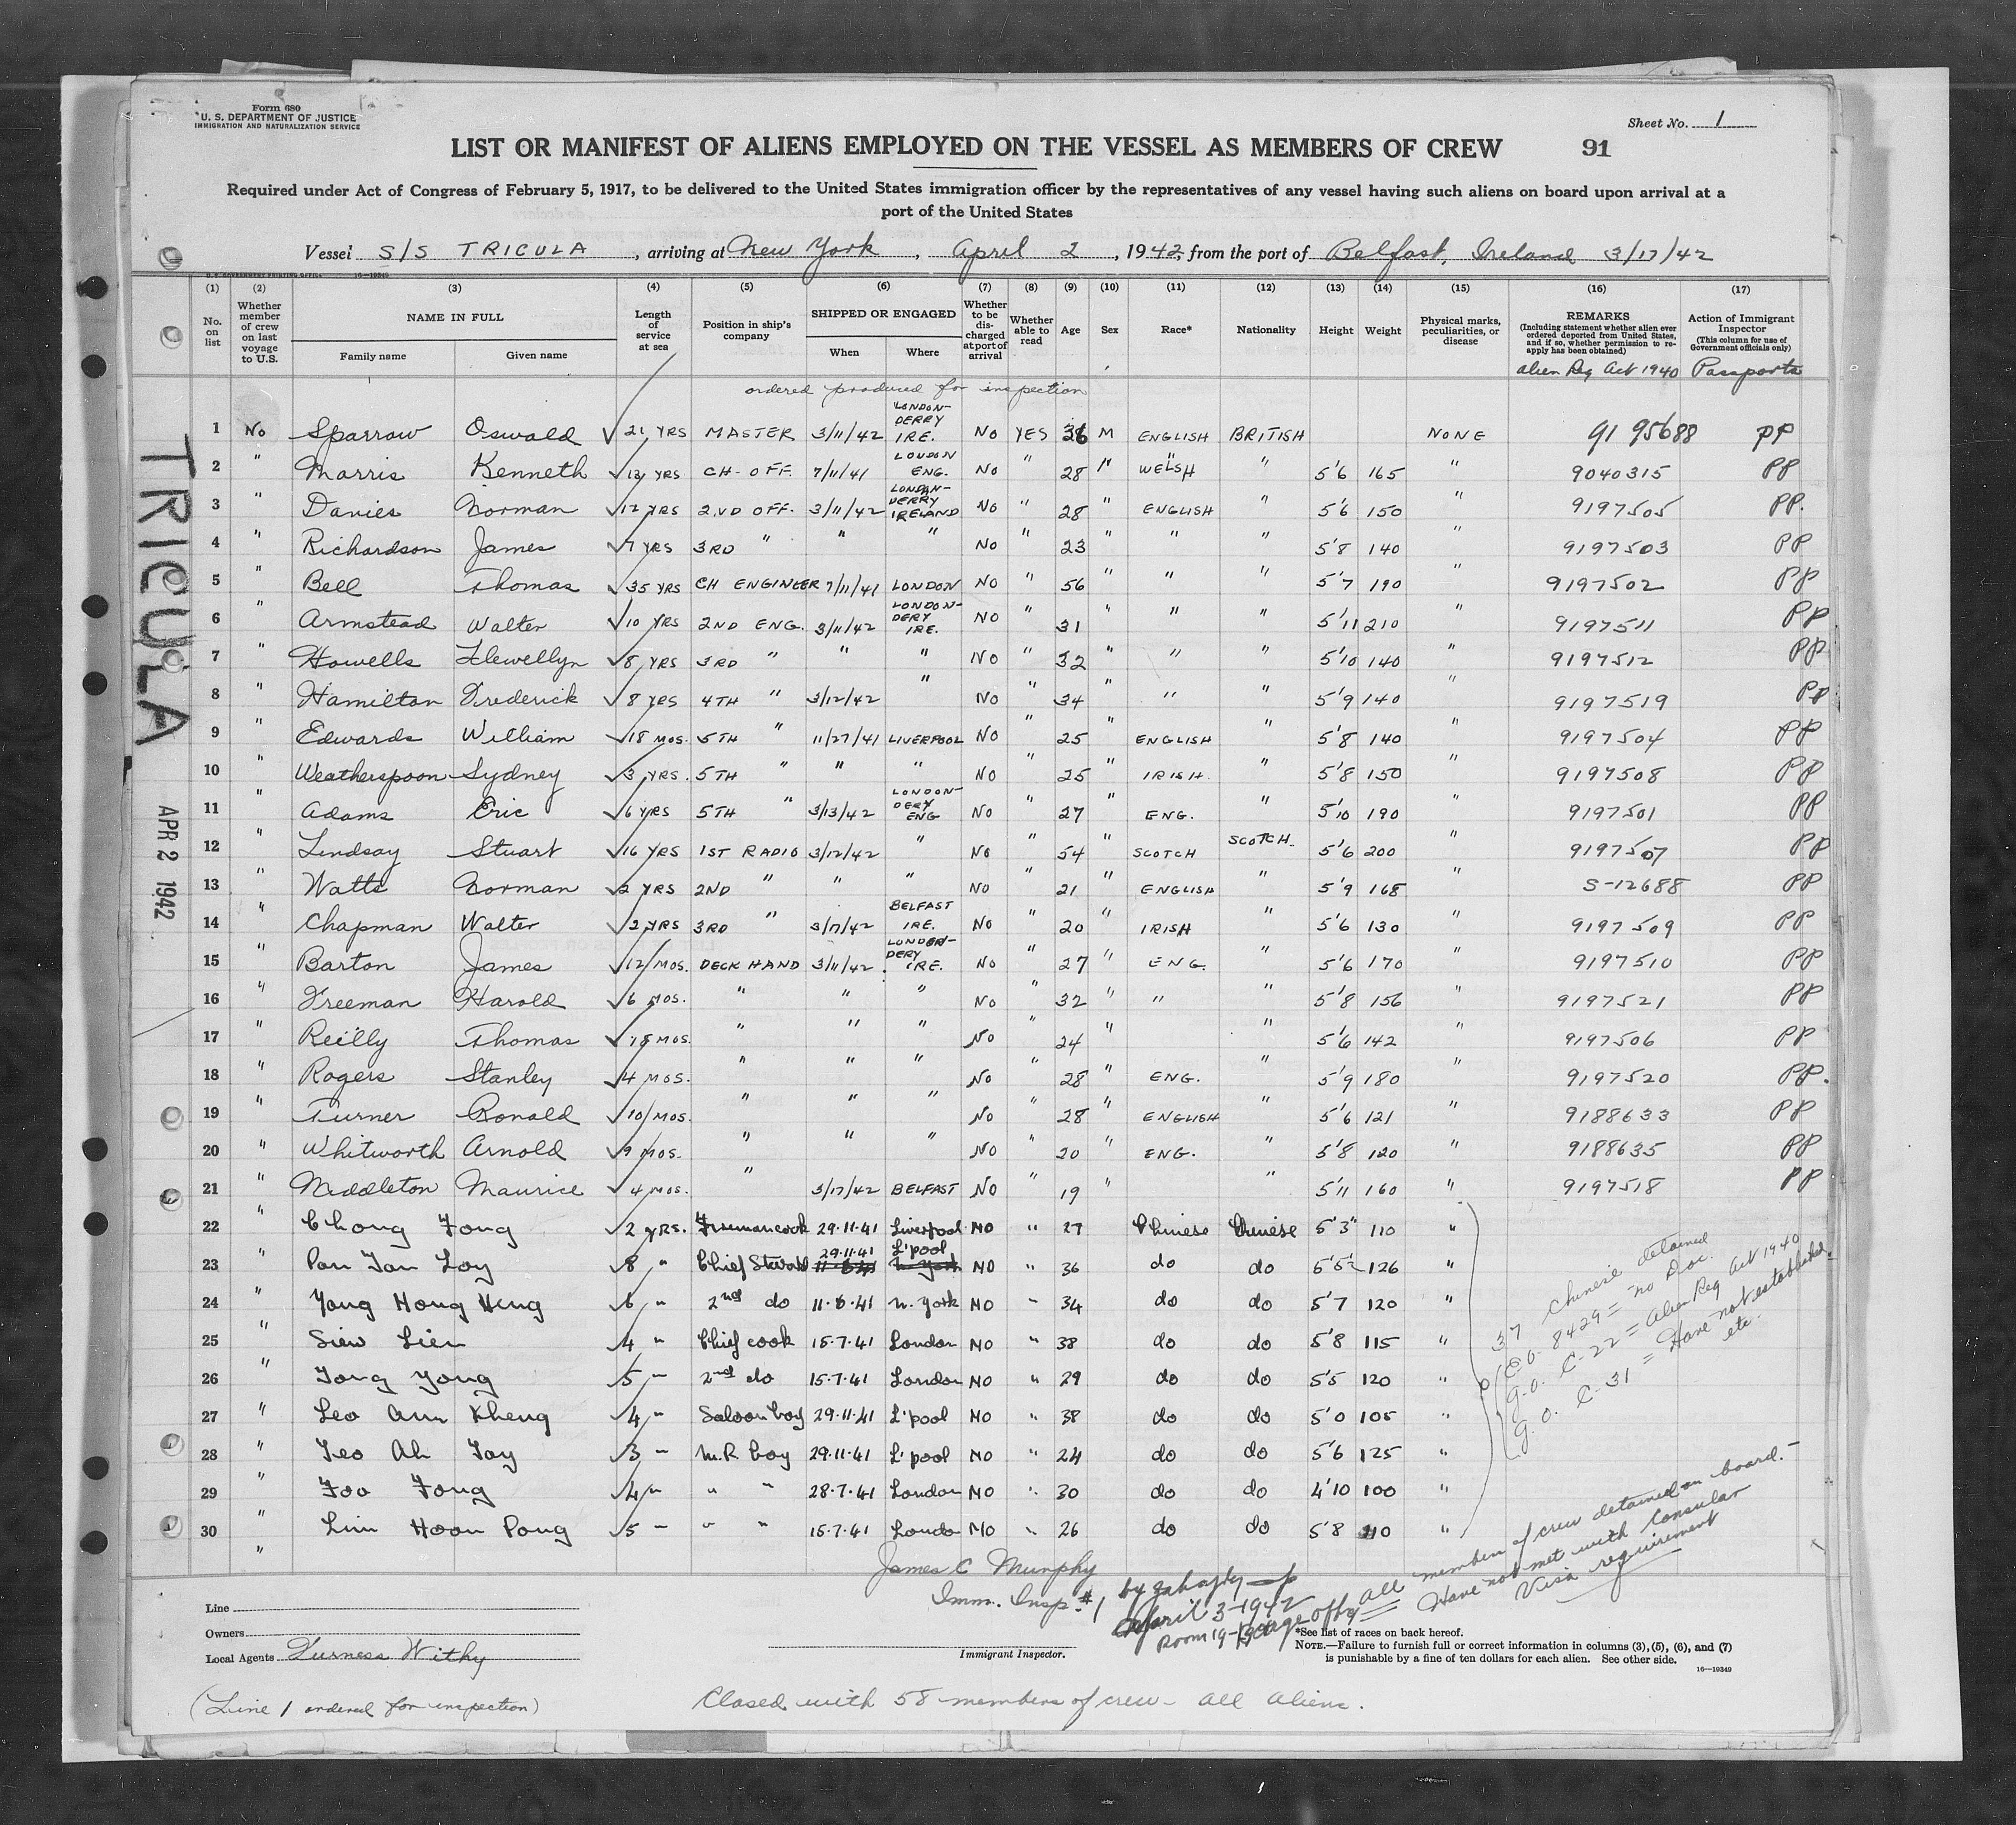 Form 680
U. S. DEPARTMENT OF JUSTICE
IMMIGRATION AND NATURALIZATION SERVICE
Sheet No. 1
LIST OR MANIFEST OF ALIENS EMPLOYED ON THE VESSEL AS MEMBERS OF CREW 91
Required under Act of Congress of February 5, 1917, to be delivered to the United States immigration officer by the representatives of any vessel having such aliens on board upon arrival at a
port of the United States
Vessel S/S TRICULA, arriving at New York, April 2, 1942, from the port of Belfast, Ireland 3/17/42
U. S. GOVERNMENT PRINTING OFFICE 16—19349
(1) (2) (3) (4) (5) (6) (7) (8) (9) (10) (11) (12) (13) (14) (15) (16) (17)
No. on list
Whether member of crew on last voyage to U.S.
NAME IN FULL
Family name Given name
Length of service at sea
Position in ship's company
SHIPPED OR ENGAGED
When Where
Whether to be discharged at port of arrival
Whether able to read
Age Sex Race* Nationality Height Weight
Physical marks, peculiarities, or disease
REMARKS
(Including statement whether alien ever ordered deported from United States, and if so, whether permission to re-apply has been obtained)
Alien Reg Act 1940
Action of Immigrant Inspector
(This column for use of Government officials only)
Passports
ordered produced for inspection
1 No Sparrow Oswald 21 YRS MASTER 3/11/42 LONDON-DERRY IRE. NO YES 36 M ENGLISH BRITISH NONE 9195688 PP
2 " Morris Kenneth 12 YRS CH. OFF. 7/11/41 LONDON ENG. NO " 28 " WELSH " 5'6 165 " 9040315 PP
3 " Davies Norman 12 YRS 2ND OFF. 3/11/42 LONDON-DERRY IRELAND NO " 28 " ENGLISH " 5'6 150 " 9197505 PP.
4 " Richardson James 7 YRS 3RD " " " NO " 23 " " " 5'8 140 " 9197503 PP
5 " Bell Thomas 35 YRS CH ENGINEER 7/11/41 LONDON NO " 56 " " 5'7 190 " 9197502 PP
6 " Armstead Walter 10 YRS 2ND ENG. 3/11/42 LONDON-DERY IRE. NO " 31 " " " 5'11 210 " 9197511 PP
7 " Howells Llewellyn 8 YRS 3RD " " " NO " 32 " " " 5'10 140 " 9197512 PP
8 " Hamilton Frederick 8 YRS 4TH " 3/12/42 " NO " 34 " " " 5'9 140 " 9197519 PP
9 " Edwards William 18 MOS. 5TH " 11/27/41 LIVERPOOL NO " 25 " ENGLISH " 5'8 140 " 9197504 PP
10 " Weatherspoon Sydney 3 YRS. 5TH " " " NO " 25 " IRISH " 5'8 150 " 9197508 PP
11 " Adams Eric 6 YRS 5TH " 3/13/42 LONDON-DERY ENG NO " 27 " ENG. " 5'10 190 " 9197501 PP
12 " Lindsay Stuart 16 YRS 1ST RADIO 3/12/42 " NO " 54 " SCOTCH SCOTCH 5'6 200 " 9197507 PP
13 " Watts Norman 2 YRS 2ND " " " NO " 21 " ENGLISH " 5'9 168 " S-12688 PP
14 " Chapman Walter 2 YRS 3RD " 3/17/42 BELFAST IRE. NO " 20 " IRISH " 5'6 130 " 9197509 PP
15 " Barton James 12 MOS. DECK HAND 3/11/42 LONDON-DERY IRE. NO " 27 " ENG. " 5'6 170 " 9197510 PP
16 " Freeman Harold 6 MOS. " " " NO " 32 " " " 5'8 156 " 9197521 PP
17 " Reilly Thomas 18 MOS. " " " NO " 24 " " 5'6 142 " 9197506 PP
18 " Rogers Stanley 4 MOS. " " " NO " 28 " ENG. " 5'9 180 " 9197520 PP.
19 " Turner Ronald 10 MOS. " " " NO " 28 " ENGLISH " 5'6 121 " 9188633 PP
20 " Whitworth Arnold 9 MOS. " " " NO " 20 " ENG. " 5'8 120 " 9188635 PP
21 " Middleton Maurice 4 MOS. " 3/17/42 BELFAST NO " 19 " " 5'11 160 " 9197518 PP
22 " Chong Fong 2 YRS. Firemancook 29.11.41 Liverpool NO " 27 Chinese Chinese 5'3" 110 "
23 " Pan Tan Loy 8 " Chief Steward 29.11.41 L'pool NO " 36 do do 5'5½ 126 "
24 " Yong Hong Heng 6 " 2nd do 11.6.41 N. York NO " 34 do do 5'7 120 "
25 " Siew Lien 4 " Chief cook 15.7.41 London NO " 38 do do 5'8 115 "
26 " Tong Yong 5 " 2nd do 15.7.41 London NO " 29 do do 5'5 120 "
27 " Leo Ann Kheng 4 " Saloon boy 29.11.41 L'pool NO " 38 do do 5'0 105 "
28 " Teo Ah Tay 3 " M.R. boy 29.11.41 L'pool NO " 24 do do 5'6 125 "
29 " Foo Fong 4 " " " 28.7.41 London NO " 30 do do 4'10 100 "
30 " Lim Hoon Pong 5 " " " 15.7.41 London NO " 26 do do 5'8 110 "
"
37 Chinese detained
E.O. 8429 = no Doc.
G.O. C-22 = Alien Reg Act 1940
G.O. C-31 = Have not established
etc.
All members of crew detained on board.
Have not met with Consular
Visa requirement
TRICULA
APR 2 1942
James C Murphy
Imm. Insp. #1
April 3-1942
Line
Owners
Local Agents Furness Withy
Immigrant Inspector.
*See list of races on back hereof.
NOTE.—Failure to furnish full or correct information in columns (3), (5), (6), and (7)
is punishable by a fine of ten dollars for each alien. See other side.
16—19349
(Line 1 ordered for inspection)
Closed with 58 members of crew - all aliens.